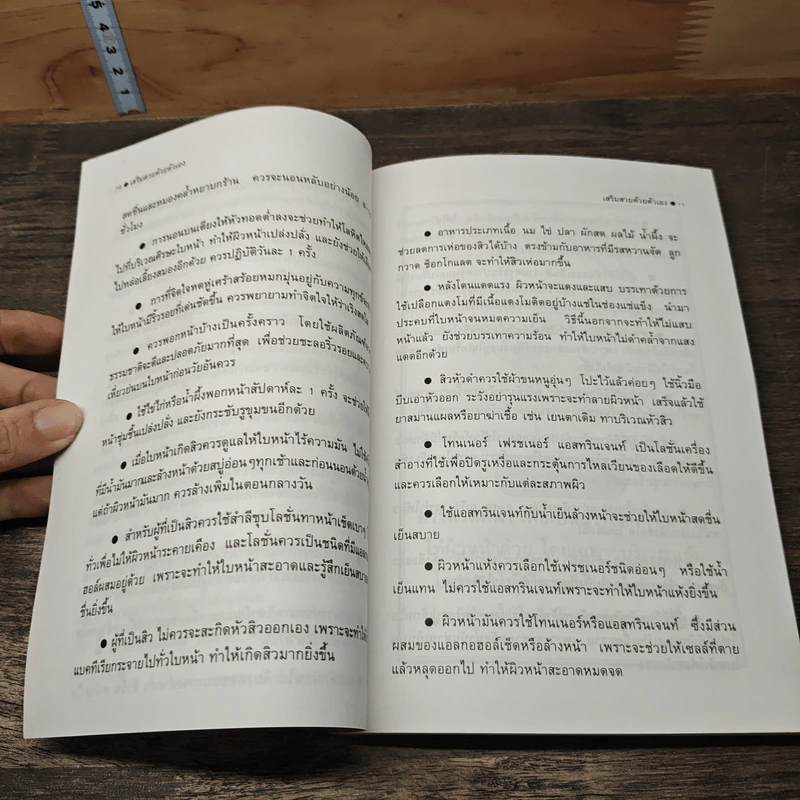 5
4
3
2
1
10 ● เสริมสวยด้วยตัวเอง
สดชื่นและหมองคล้ำหยาบกร้าน ควรจะนอนหลับอย่างน้อย
ชั่วโมง
● การนอนบนเตียงให้หัวทอดต่ำลงจะช่วยทำให้โลหิตไหล
ไปที่บริเวณศีรษะใบหน้า ทำให้ผิวหน้าเปล่งปลั่ง และยังช่วยให้
ไปหล่อเลี้ยงสมองอีกด้วย ควรปฏิบัติวันละ 1 ครั้ง
● การที่จิตใจหดหู่เศร้าสร้อยหมกมุ่นอยู่กับความทุกข์
ให้ใบหน้ามีริ้วรอยที่เด่นชัดขึ้น ควรพยายามทำจิตใจให้ร่าเริงสดใส
● ควรพอกหน้าบ้างเป็นครั้งคราว โดยใช้ผลิตภัณฑ์
ธรรมชาติจะดีและปลอดภัยมากที่สุด เพื่อช่วยชะลอริ้วรอยและ
เหี่ยวย่นบนใบหน้าก่อนวัยอันควร
● ใช้ไข่ไก่หรือน้ำผึ้งพอกหน้าสัปดาห์ละ 1 ครั้ง จะช่วย
หน้าชุ่มชื้นเปล่งปลั่ง และยังกระชับรูขุมขนอีกด้วย
● เมื่อใบหน้าเกิดสิวควรดูแลให้ใบหน้าไร้ความมัน
ที่มีน้ำมันมากและล้างหน้าด้วยสบู่อ่อนๆทุกเช้าและก่อนนอนด้วยน้ำ
แต่ถ้าผิวหน้ามันมาก ควรล้างเพิ่มในตอนกลางวัน
● สำหรับผู้ที่เป็นสิวควรใช้สำลีชุบโลชั่นทาหน้าเช็ดเบาๆ
ทั่วเพื่อไม่ให้ผิวหน้าระคายเคือง และโลชั่นควรเป็นชนิดที่มีแอลก
ฮอล์ผสมอยู่ด้วย เพราะจะทำให้ใบหน้าสะอาดและรู้สึกเย็นสบาย
ชื่นยิ่งขึ้น
● ผู้ที่เป็นสิว ไม่ควรจะสะกิดหัวสิวออกเอง เพราะจะทำให้
แบคทีเรียกระจายไปทั่วใบหน้า ทำให้เกิดสิวมากยิ่งขึ้น
เสริมสวยด้วยตัวเอง ● 11
● อาหารประเภทเนื้อ นม ไข่ ปลา ผักสด ผลไม้ น้ำผึ้ง จะ
ช่วยลดการเห่อของสิวได้บ้าง ตรงข้ามกับอาหารที่มีรสหวานจัด ลูก
กวาด ช็อกโกแลต จะทำให้สิวเห่อมากขึ้น
● หลังโดนแดดแรง ผิวหน้าจะแดงและแสบ บรรเทาด้วยการ
ใช้เปลือกแตงโมที่มีเนื้อแตงโมติดอยู่บ้างแช่ในช่องแช่แข็ง นำมา
ประคบที่ใบหน้าจนหมดความเย็น วิธีนี้นอกจากจะทำให้ไม่แสบ
หน้าแล้ว ยังช่วยบรรเทาความร้อน ทำให้ใบหน้าไม่ดำคล้ำจากแสง
แดดอีกด้วย
● สิวหัวดำควรใช้ผ้าขนหนูอุ่นๆ โปะไว้แล้วค่อยๆ ใช้นิ้วมือ
บีบเอาหัวออก ระวังอย่ารุนแรงเพราะจะทำลายผิวหน้า เสร็จแล้วใช้
ยาสมานแผลหรือยาฆ่าเชื้อ เช่น เยนตาเดิม ทาบริเวณหัวสิว
● โทนเนอร์ เฟรชเนอร์ แอสทรินเจนท์ เป็นโลชั่นเครื่อง
สำอางที่ใช้เพื่อปิดรูเหงื่อและกระตุ้นการไหลเวียนของเลือดให้ดีขึ้น
และควรเลือกให้เหมาะกับแต่ละสภาพผิว
● ใช้แอสทรินเจนท์กับน้ำเย็นล้างหน้าจะช่วยให้ใบหน้าสดชื่น
เย็นสบาย
● ผิวหน้าแห้งควรเลือกใช้เฟรชเนอร์ชนิดอ่อนๆ หรือใช้น้ำ
เย็นแทน ไม่ควรใช้แอสทรินเจนท์เพราะจะทำให้ใบหน้าแห้งยิ่งขึ้น
● ผิวหน้ามันควรใช้โทนเนอร์หรือแอสทรินเจนท์ ซึ่งมีส่วน
ผสมของแอลกอฮอล์เช็ดหรือล้างหน้า เพราะจะช่วยให้เซลล์ที่ตาย
แล้วหลุดออกไป ทำให้ผิวหน้าสะอาดหมดจด